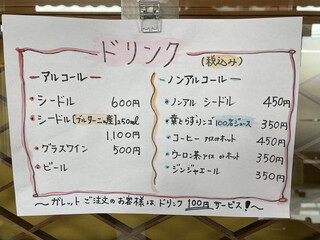 ドリンク (税込み)
ーアルコールー
・シードル 600円
・シードル [ブルターニュ産] 250ml
1,100円
・グラスワイン 500円
・ビール
ーノンアルコールー
・ノンアル シードル 450円
・葉とらずリンゴ 100%ジュース 350円
・コーヒー アイス or ホット 450円
・ウーロン茶 アイス or ホット 350円
・ジンジャエール 350円
〜ガレット ご注文のお客様は ドリンク 100円 サービス!〜